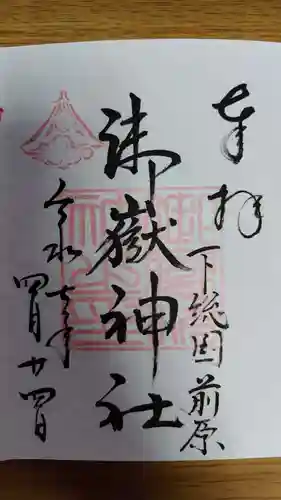 奉拝
下総国前原
御嶽神社
令和七年
四月廿四日